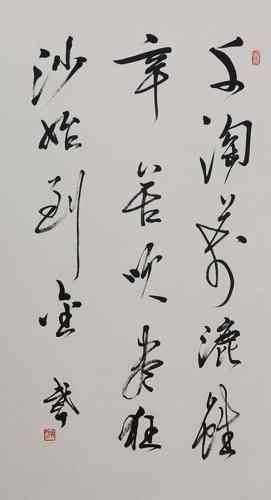 千淘萬漉雖
辛苦吹盡狂
沙始到金